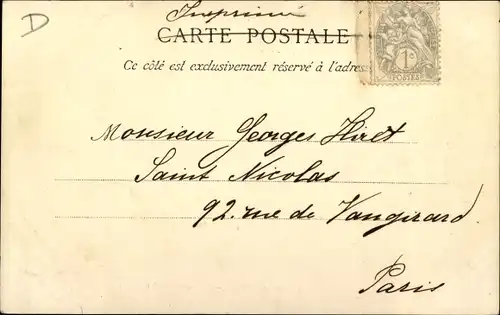 D
Imprimé
CARTE POSTALE
Ce côté est exclusivement réservé à l'adres
1c
POSTES
Monsieur Georges
Saint Nicolas
92. rue de Vaugirard
Paris